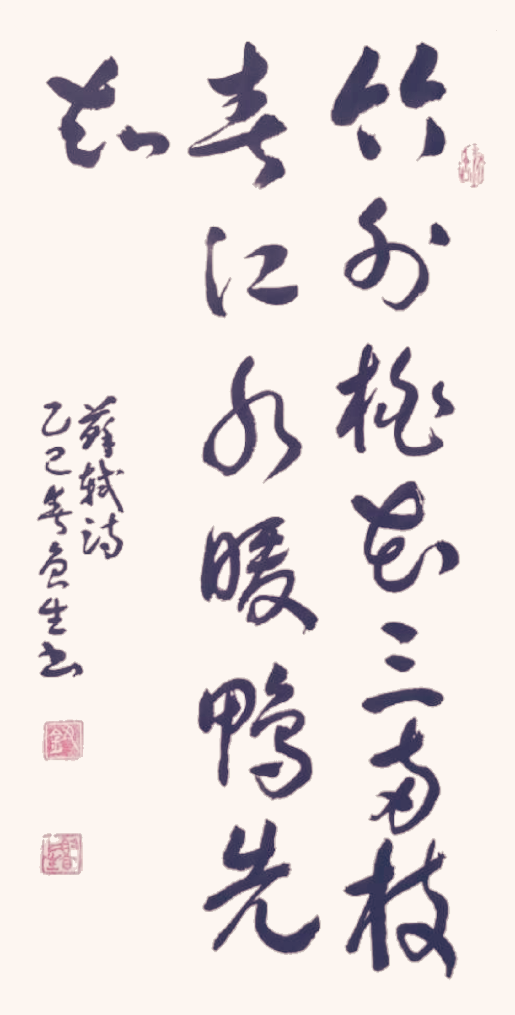 竹外桃花三两枝
春江水暖鸭先
知
苏轼诗
乙巳春 生书